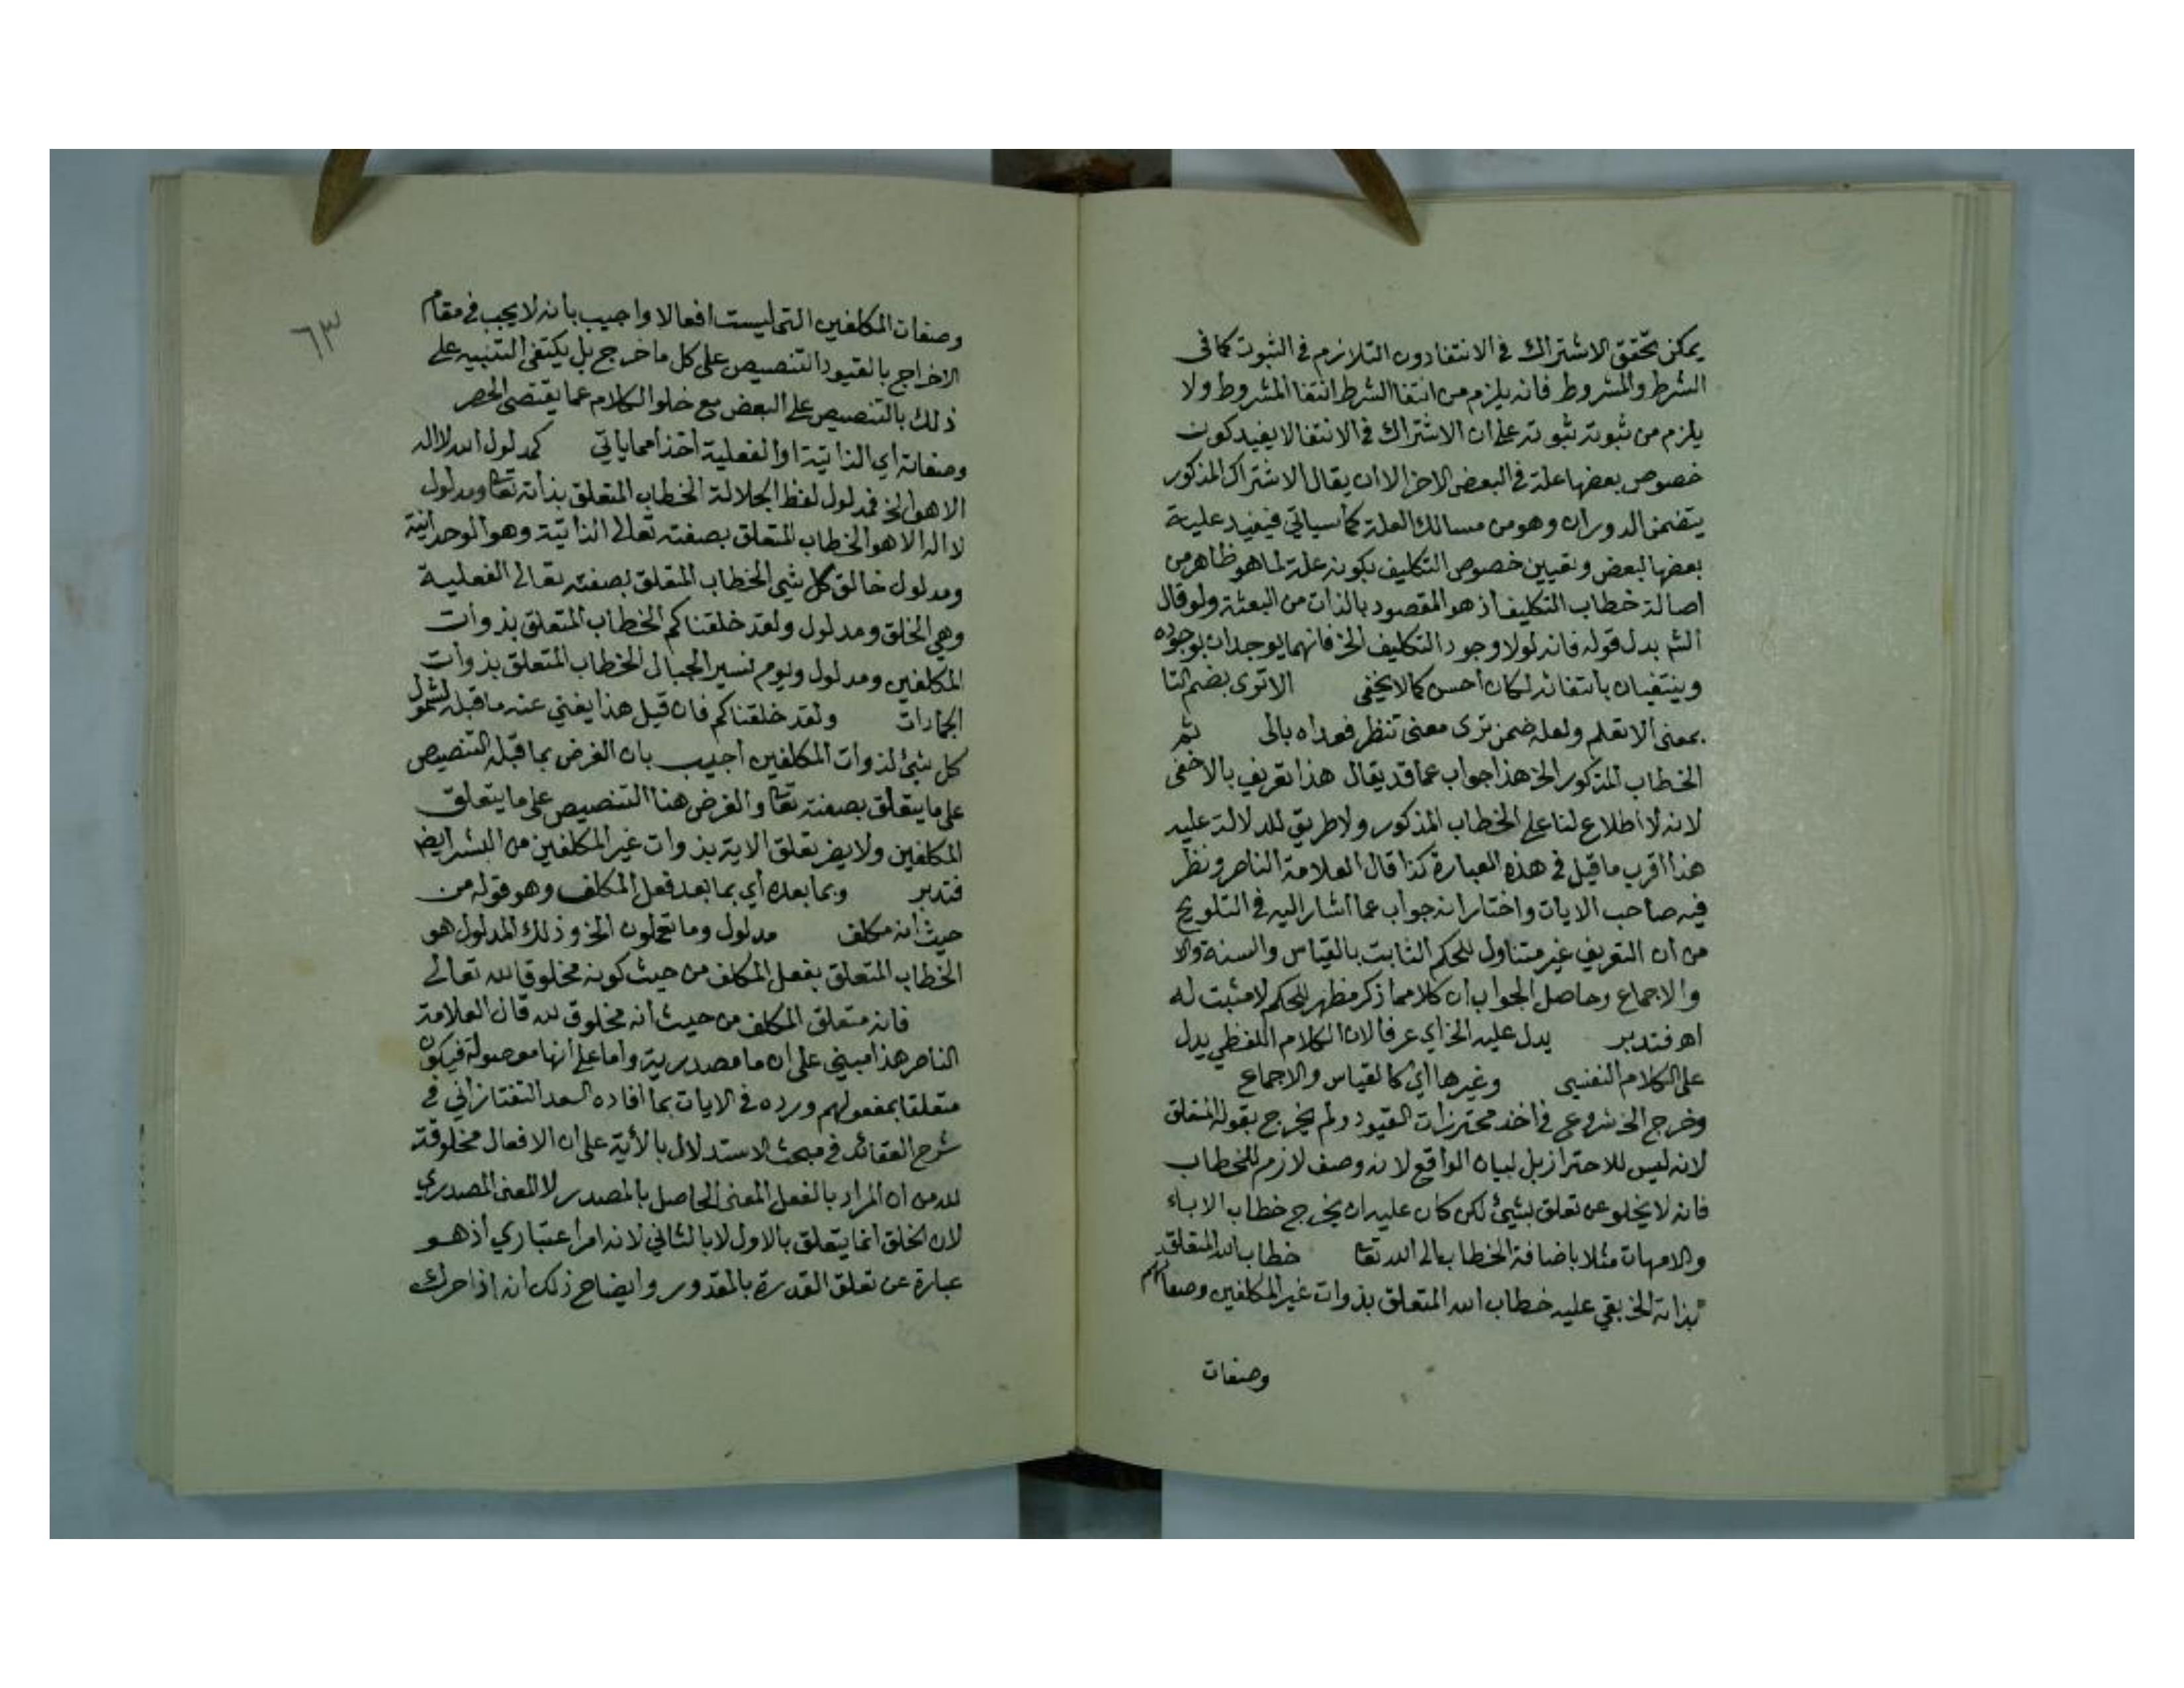 يمكن تحقق الاشتراك في الانتفا دون التلازم في الثبوت كما في
الشرط والمشروط فانه يلزم من انتفا الشرط انتفا المشروط ولا
يلزم من ثبوته ثبوته على ان الاشتراك في الانتفا لا يفيد كون
خصوص بعضها علة في البعض الاخر الا ان يقال الاشتراك المذكور
يتضمن الدوران وهو من مسالك العلة كما سياتي فيفيد علية
بعضها لبعض وتعيين خصوص التكليف بكونه علة لما هو ظاهر من
اصالة خطاب التكليف اذ هو المقصود بالذات من البعثة ولو قال
الشم بدل قوله فانه لولا وجود التكليف الخ فانهما يوجدان بوجوده
وينتفيان بانتفائه لكان أحسن كما لا يخفى الا ترى بضم التا
بمعنى الا تعلم ولعله ضمن ترى معنى تنظر فعداه بالى ثم
الخطاب المذكور الخ هذا جواب عما قد يقال هذا تعريف بالاخفى
لانه لا اطلاع لنا على الخطاب المذكور ولا طريق للدلالة عليه
هذا اقرب ما قيل في هذه العبارة كذا قال العلامة الناصر ونظر
فيه صاحب الايات واختار انه جواب عما اشار اليه في التلويح
من ان التعريف غير متناول للحكم الثابت بالقياس والسنة والا
والاجماع وحاصل الجواب ان كلا مما ذكر مظهر للحكم لا مثبت له
اه فتدبر يدل عليه الخ اي عرفا لان الكلام اللفظي يدل
على الكلام النفسي وغيرها أي كالقياس والاجماع
وخرج الخ شروع في اخذ محترزات القيود ولم يخرج بقوله المتعلق
لانه ليس للاحتراز بل لبيان الواقع لانه وصف لازم للخطاب
فانه لا يخلو عن تعلق بشيئ لكن كان عليه ان يخرج خطاب الاباء
والامهات مثلا باضافة الخطاب الى الله تعا خطاب الله المتعلق
بذاته الخ بقي عليه خطاب الله المتعلق بذوات غير المكلفين وصفاتهم
وصفات
٦٣
وصفات المكلفين التي ليست افعالا واجيب بانه لا يجب في مقام
الاخراج بالقيود التنصيص على كل ما خرج بل يكتفى التنبيه على
ذلك بالتنصيص على البعض مع خلو الكلام عما يقتضى الحصر
وصفاته أي الذاتية او الفعلية أخذا مما ياتي كمدلول الله لا اله
الا هو الخ فمدلول لفظ الجلالة الخطاب المتعلق بذاته تعا ومدلول
لا اله الا هو الخطاب المتعلق بصفته تعالى الذاتية وهو الوحدانية
ومدلول خالق كل شي الخطاب المتعلق بصفته تعالى الفعلية
وهي الخلق ومدلول ولقد خلقناكم الخطاب المتعلق بذوات
المكلفين ومدلول ويوم نسير الجبال الخطاب المتعلق بذوات
الجمادات ولقد خلقناكم فان قيل هذا يغني عنه ما قبله لشمول
كل شئ لذوات المكلفين أجيب بان الغرض بما قبله التنصيص
على ما يتعلق بصفته تعا والغرض هنا التنصيص على ما يتعلق
المكلفين ولا يضر تعلق الاية بذوات غير المكلفين من البشر ايضا
فتدبر وبما بعده أي بما بعد فعل المكلف وهو قوله من
حيث أنه مكلف مدلول وما تعملون الخ وذلك المدلول هو
الخطاب المتعلق بفعل المكلف من حيث كونه مخلوقا لله تعالى
فانه متعلق المكلف من حيث أنه مخلوق لله قال العلامة
الناصر هذا مبني على ان ما مصدرية وأما على أنها موصولة فيكون
متعلقا بمفعولهم ورده في الايات بما افاده السعد التفتازاني في
شرح العقائد في مبحث الاستدلال بالأية على ان الافعال مخلوقة
لله من ان المراد بالفعل المعنى الحاصل بالمصدر لا المعنى المصدري
لان الخلق انما يتعلق بالاول لا بالثاني لانه امر اعتباري اذ هو
عبارة عن تعلق القدرة بالمقدور وايضاح ذلك انه اذا حرك